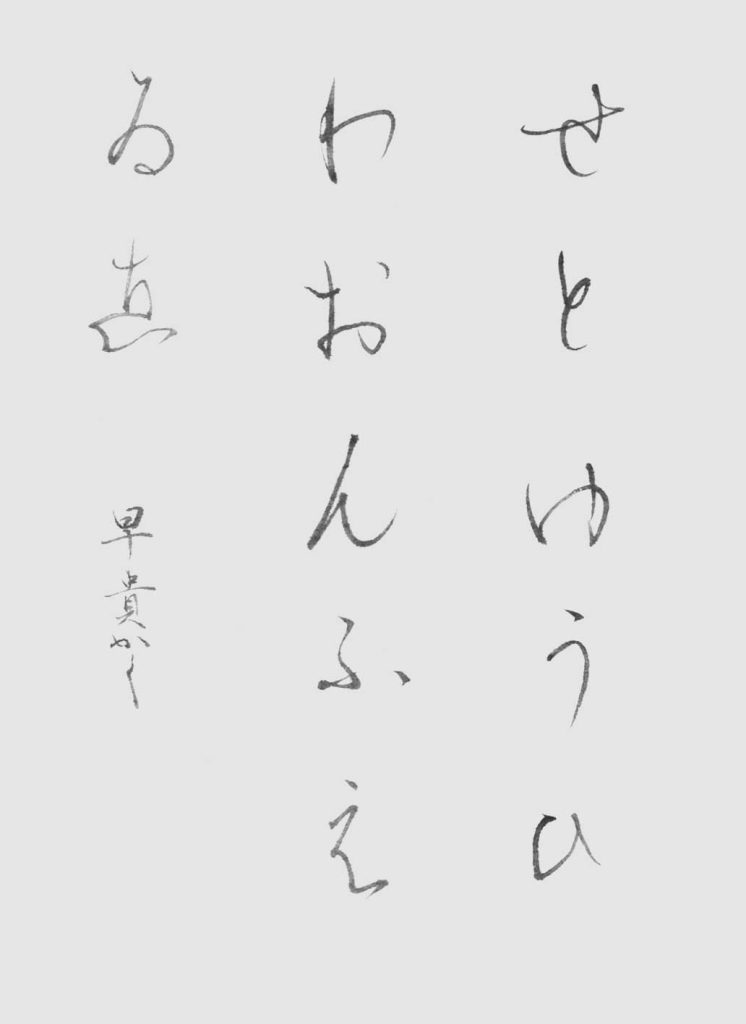 せとゆうひ
わおんふえ
ゐゑ 早貴かく